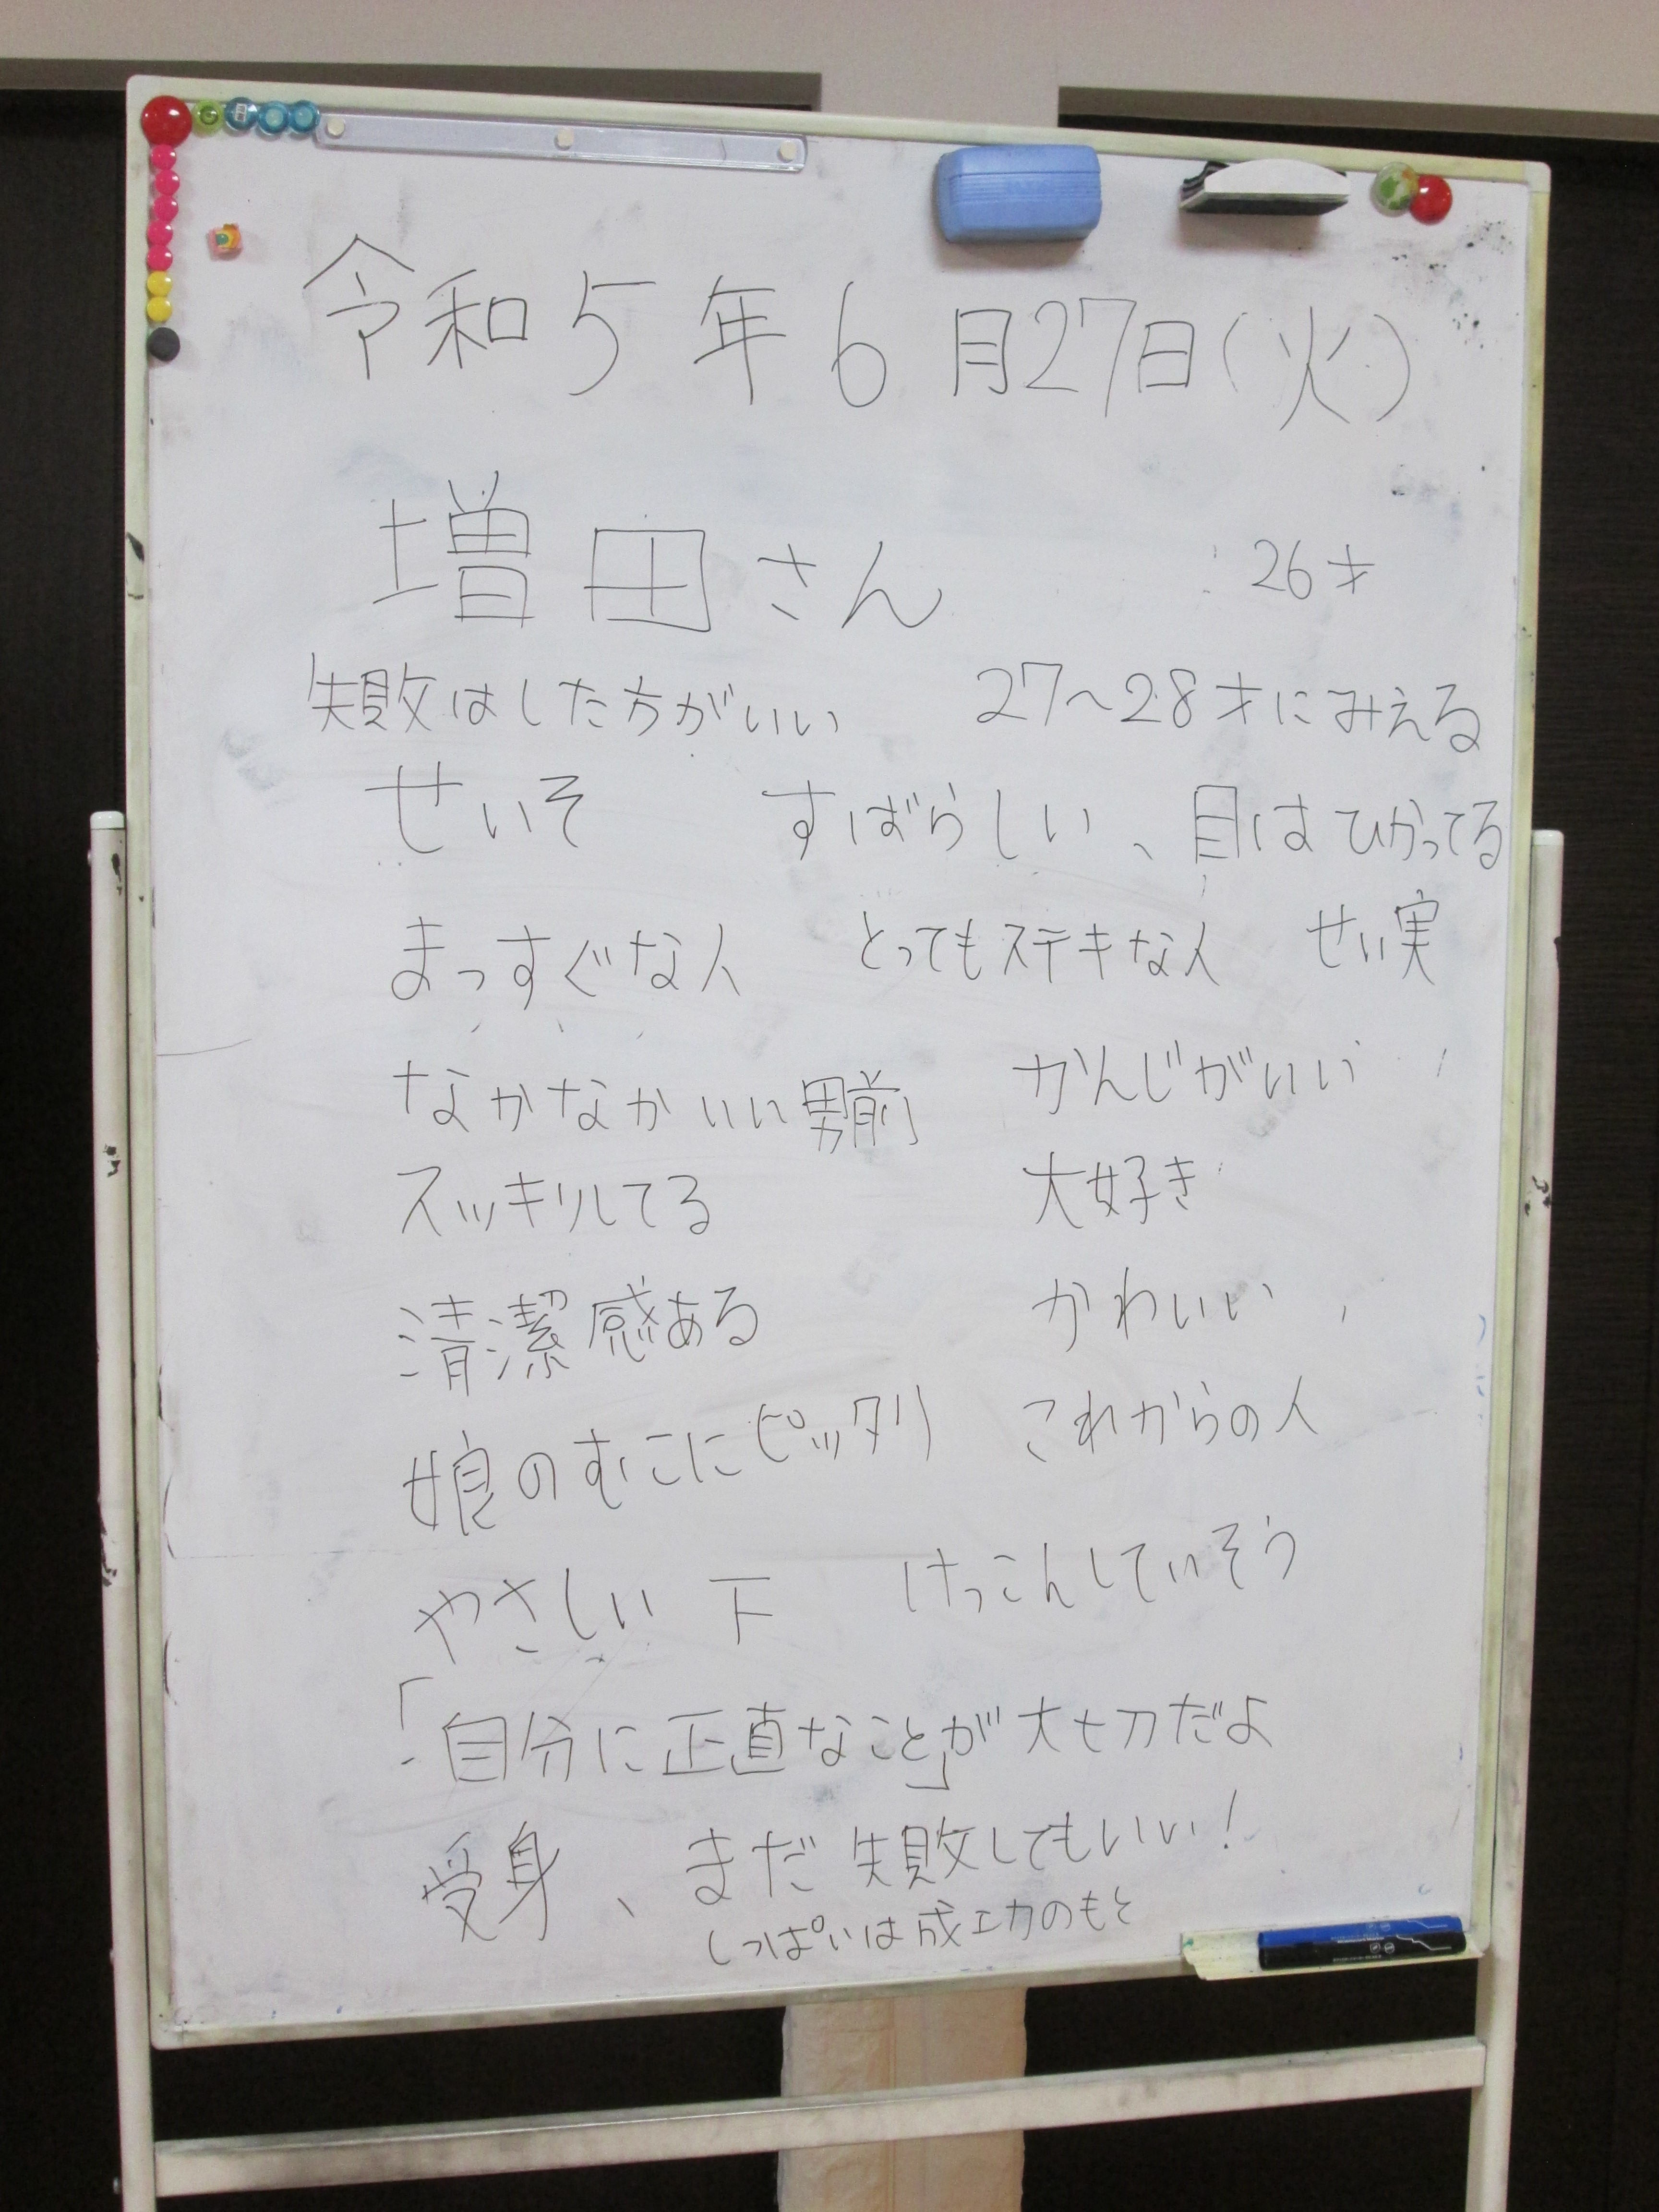 令和5年6月27日(火)
増田さん 26才
失敗はした方がいい 27～28才にみえる
せいそ すばらしい、目はひかってる
まっすぐな人 とってもステキな人 せい実
なかなかいい男前 かんじがいい
スッキリしてる 大好き
清潔感ある かわいい
娘のむこにピッタリ これからの人
やさしい 下 けっこんしていそう
「自分に正直なこと」が大切だよ
受身、まだ失敗してもいい!
しっぱいは成功のもと